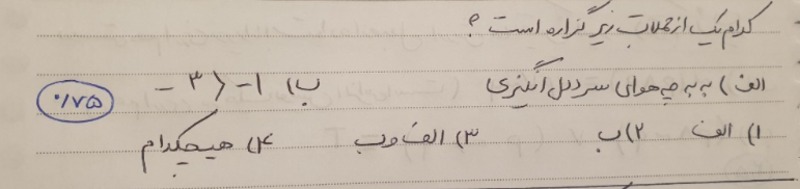 کدام یک از جملات زیر گزاره است ؟
الف) به به چه هوای سرد دل انگیزی ب) ۱- < ۳-
۰/۷۵
۱) الف ۲) ب ۳) الف و ب ۴) هیچکدام